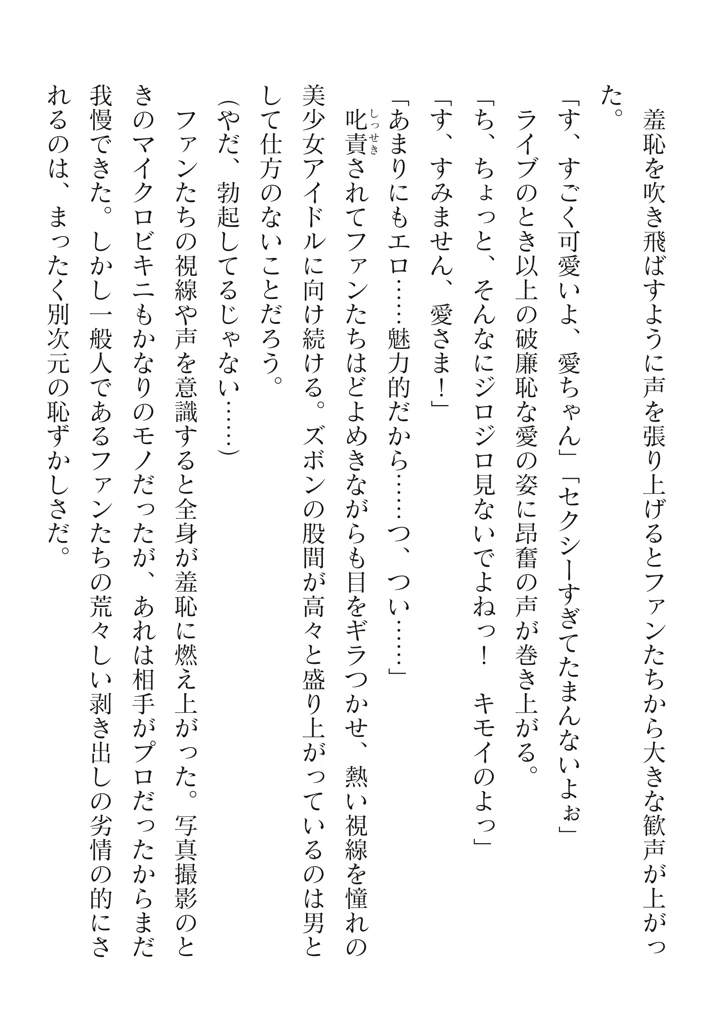 羞恥を吹き飛ばすように声を張り上げるとファンたちから大きな歓声が上がっ
た。
「す、すごく可愛いよ、愛ちゃん」「セクシーすぎてたまんないよぉ」
ライブのとき以上の破廉恥な愛の姿に昂奮の声が巻き上がる。
「ち、ちょっと、そんなにジロジロ見ないでよねっ！　キモイのよっ」
「す、すみません、愛さま！」
「あまりにもエロ……魅力的だから……つ、つい……」
叱責されてファンたちはどよめきながらも目をギラつかせ、熱い視線を憧れの
しっせき
美少女アイドルに向け続ける。ズボンの股間が高々と盛り上がっているのは男と
して仕方のないことだろう。
（やだ、勃起してるじゃない……）
ファンたちの視線や声を意識すると全身が羞恥に燃え上がった。写真撮影のと
きのマイクロビキニもかなりのモノだったが、あれは相手がプロだったからまだ
我慢できた。しかし一般人であるファンたちの荒々しい剥き出しの劣情の的にさ
れるのは、まったく別次元の恥ずかしさだ。